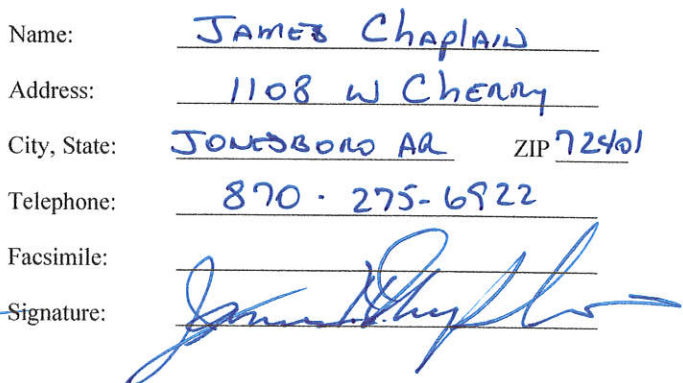 Name: James Chaplain
Address: 1108 W Cherry
City, State: Jonesboro AR ZIP 72401
Telephone: 870 · 275-6922
Facsimile:
Signature: